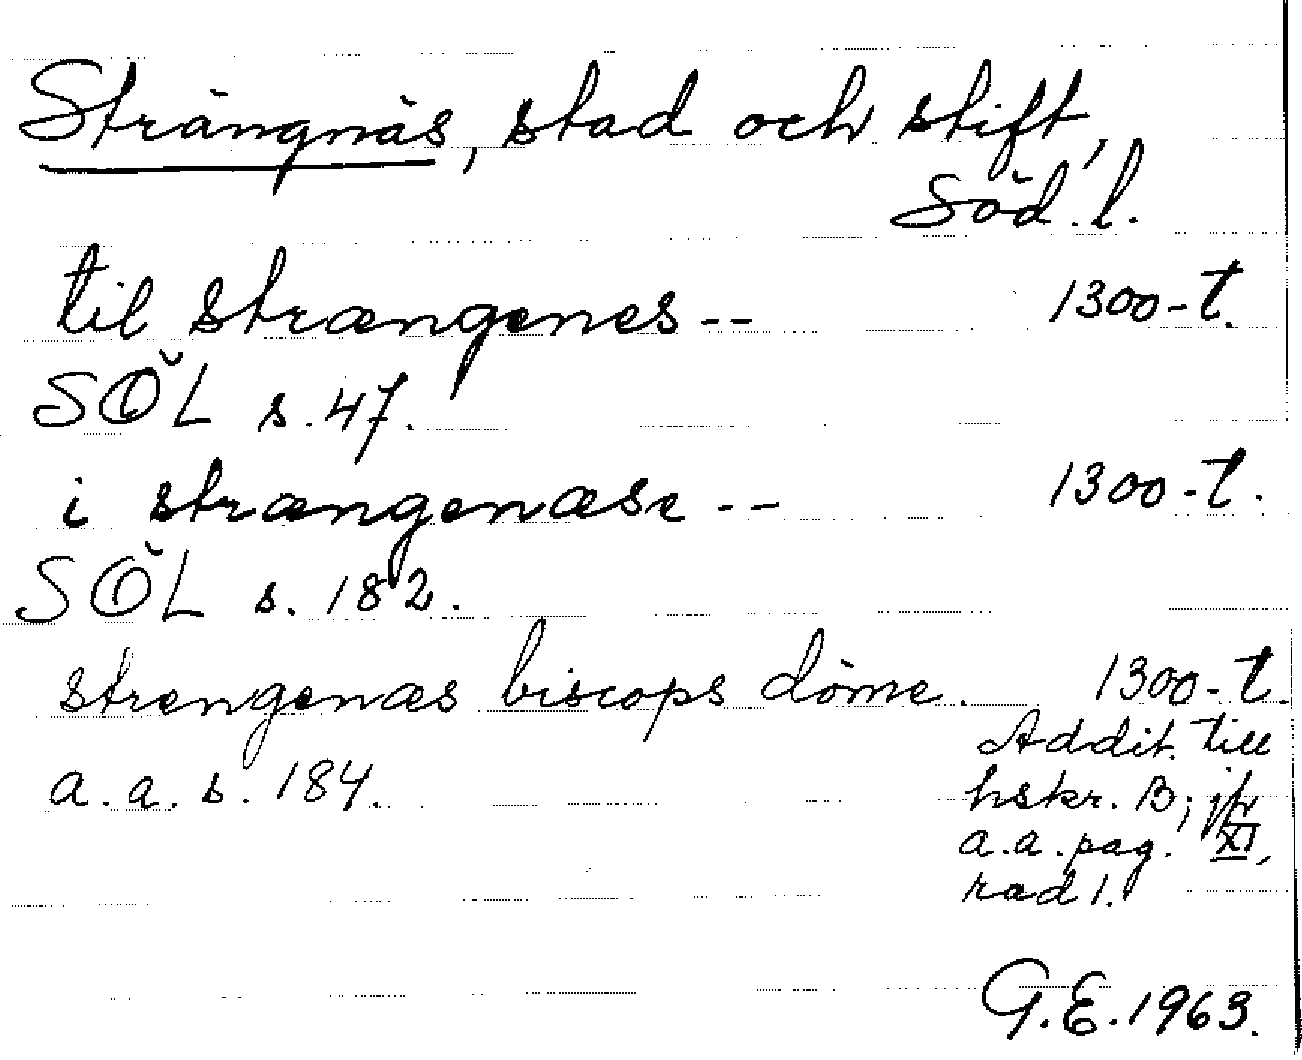 Strängnäs, stad och stift,
Söd.l.
til strængenes -- 1300-t.
SÖL s. 47.
i strængenæse -- 1300-t.
SÖL s. 182.
strengenæs biscops döme. 1300-t.
a.a. s. 184. Addit. till
hskr. B; jfr
a.a. pag. XI,
rad 1.
G.E. 1963.